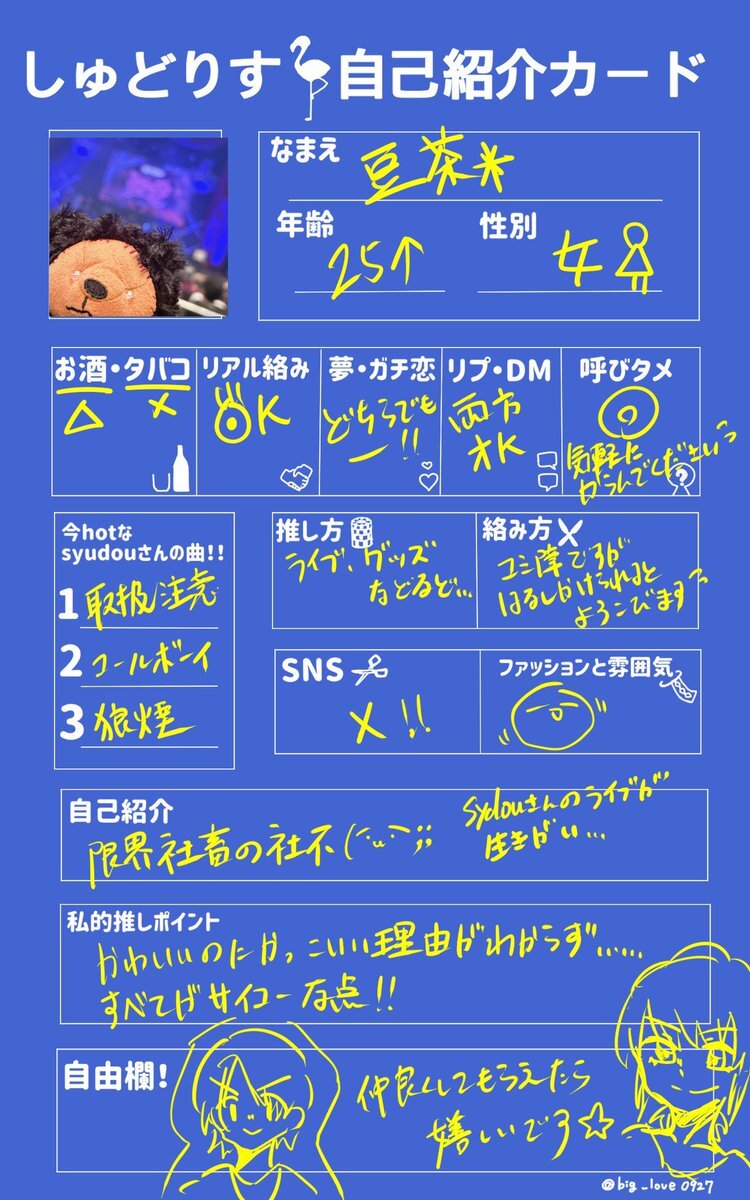 しゅどりす 自己紹介カード
なまえ
豆茶*
年齢
25↑
性別
女
お酒・タバコ
△ ×
リアル絡み
◎K
夢・ガチ恋
どちらでも
ー!!
リプ・DM
両方
オK
呼びタメ
◎
気軽に
からんでくださいっ
?
今hotな
syudouさんの曲!!
1 取扱注意
2 コールボーイ
3 狼煙
推し方
ライブ、グッズ
などなど...
絡み方
コミ障ですが
はなしかけられると
よろこびますっ
SNS
×!!
ファッションと雰囲気
自己紹介
限界社畜の社不(^ω^;;
sydouさんのライブが
生きがい...
私的推しポイント
かわいいのにかっこいい理由がわからず......
すべてがサイコーな点!!
自由欄!
仲良くしてもらえたら
嬉しいです☆
@big_love0927